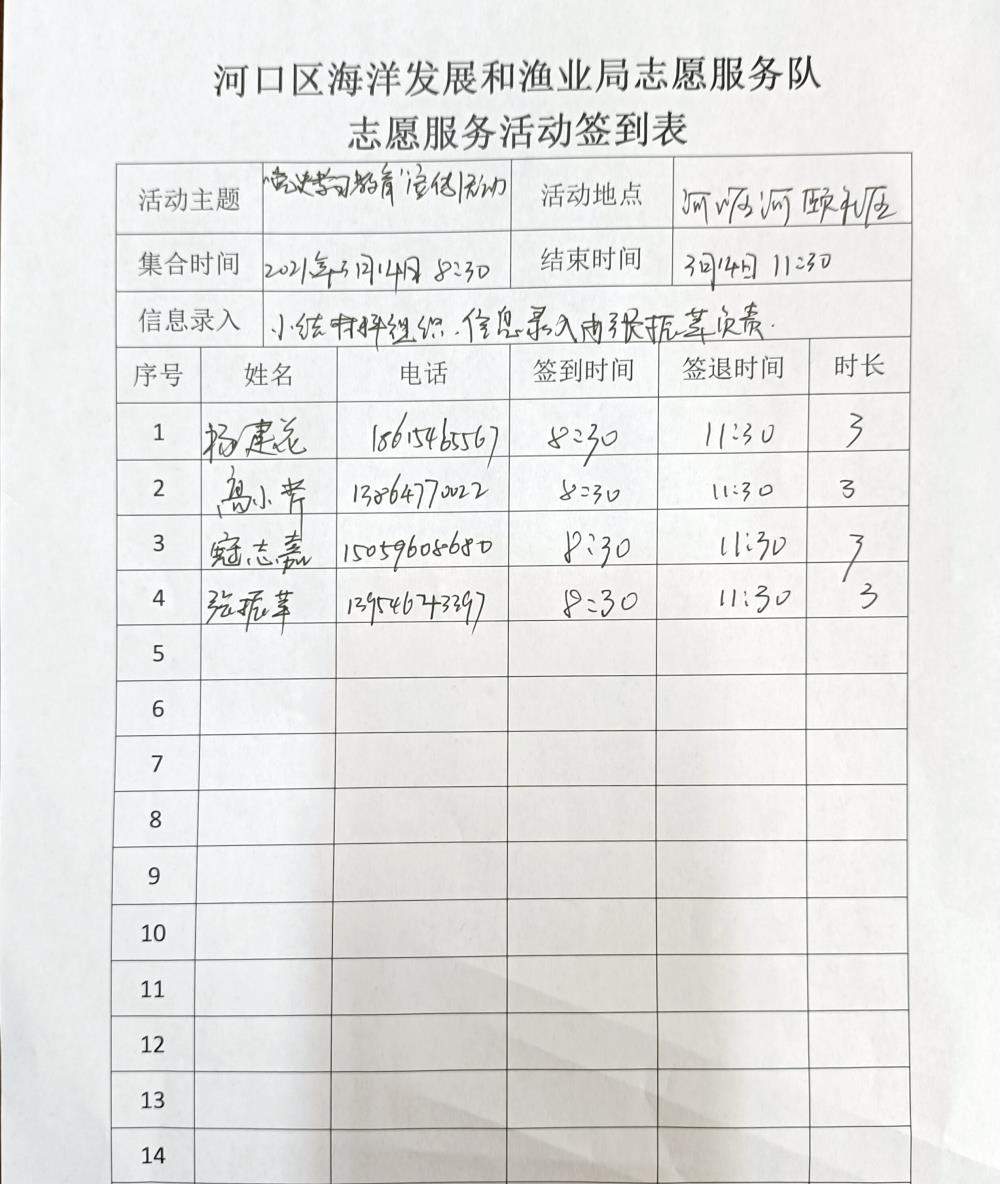 河口区海洋发展和渔业局志愿服务队
志愿服务活动签到表
活动主题 "党史学习教育"宣传活动 活动地点 河口区河颐社区
集合时间 2021年3月14日 8:30 结束时间 3月14日 11:30
信息录入 小结 组织.信息录入由张振苹负责.
序号 姓名 电话 签到时间 签退时间 时长
1 杨建花 18615465567 8:30 11:30 3
2 高小芹 13864770022 8:30 11:30 3
3 寇志嘉 15059608680 8:30 11:30 3
4 张振苹 13954623397 8:30 11:30 3
5
6
7
8
9
10
11
12
13
14